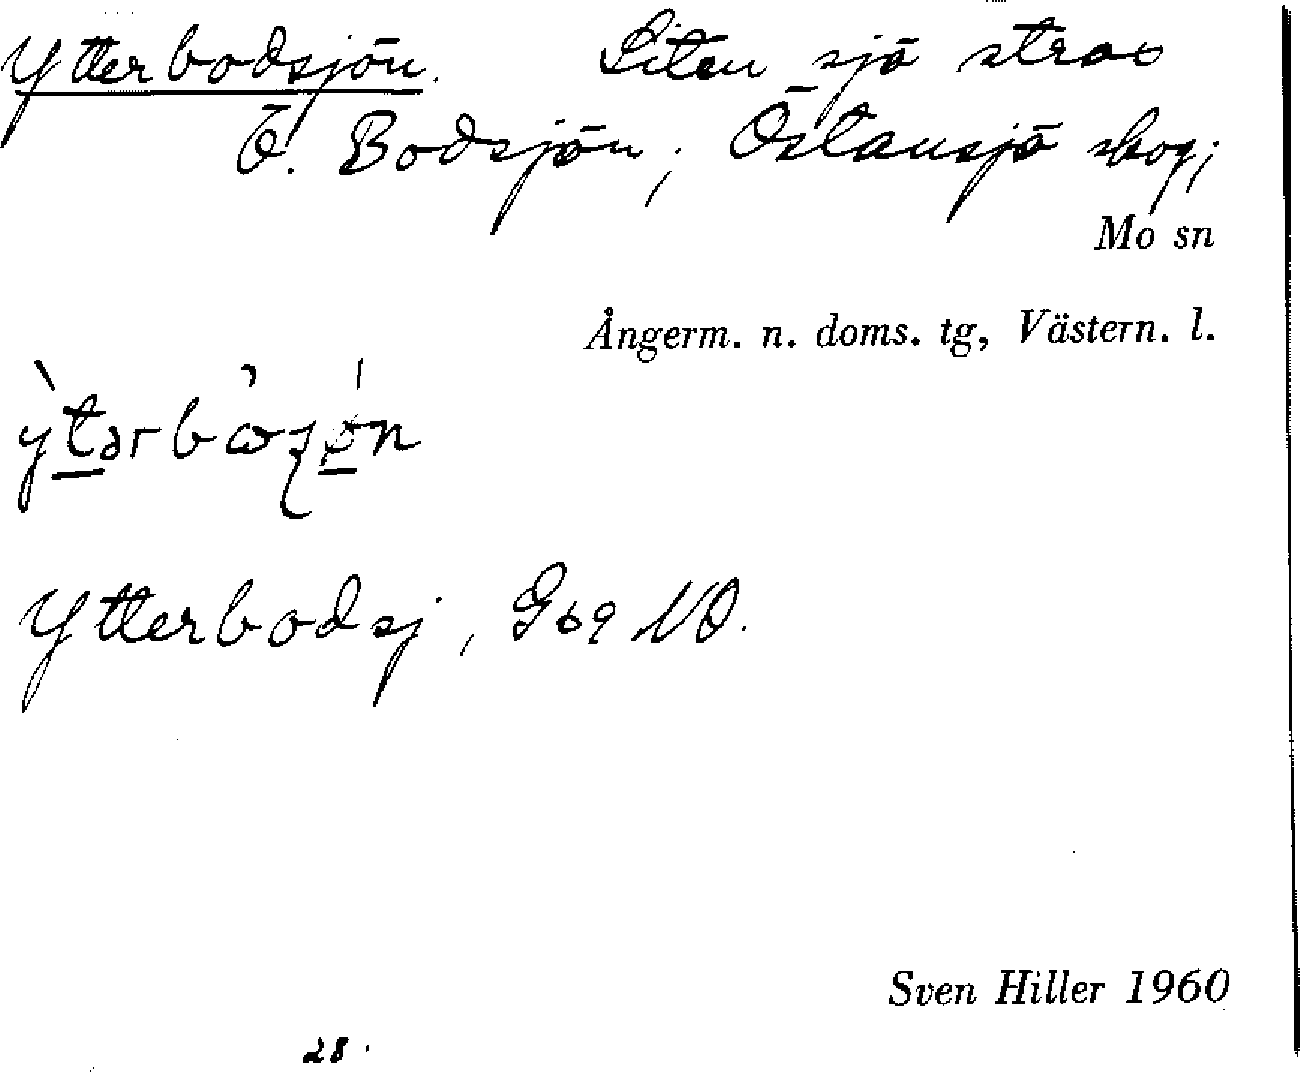 Ytterbodsjön. Liten sjö strax
Ö. Bodsjön, Östansjö skog;
Mo sn
Ångerm. n. doms. tg, Västern. l.
Ytterbodsj, G69 NO.
Sven Hiller 1960
28.